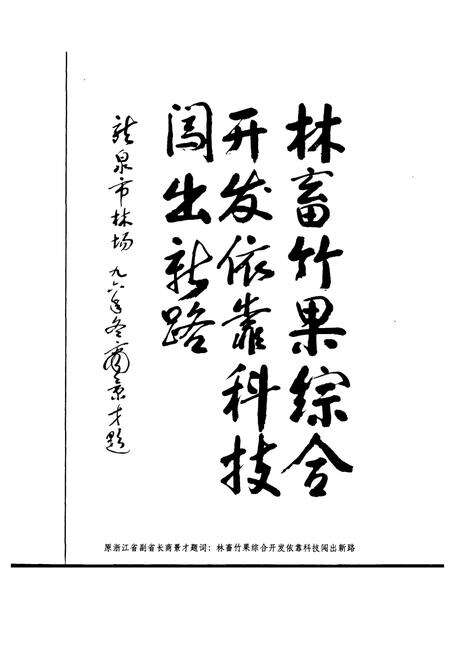 林畜竹果综合
开发依靠科技
闯出新路
龙泉市林场 九六年冬商景才题
原浙江省副省长商景才题词：林畜竹果综合开发依靠科技闯出新路